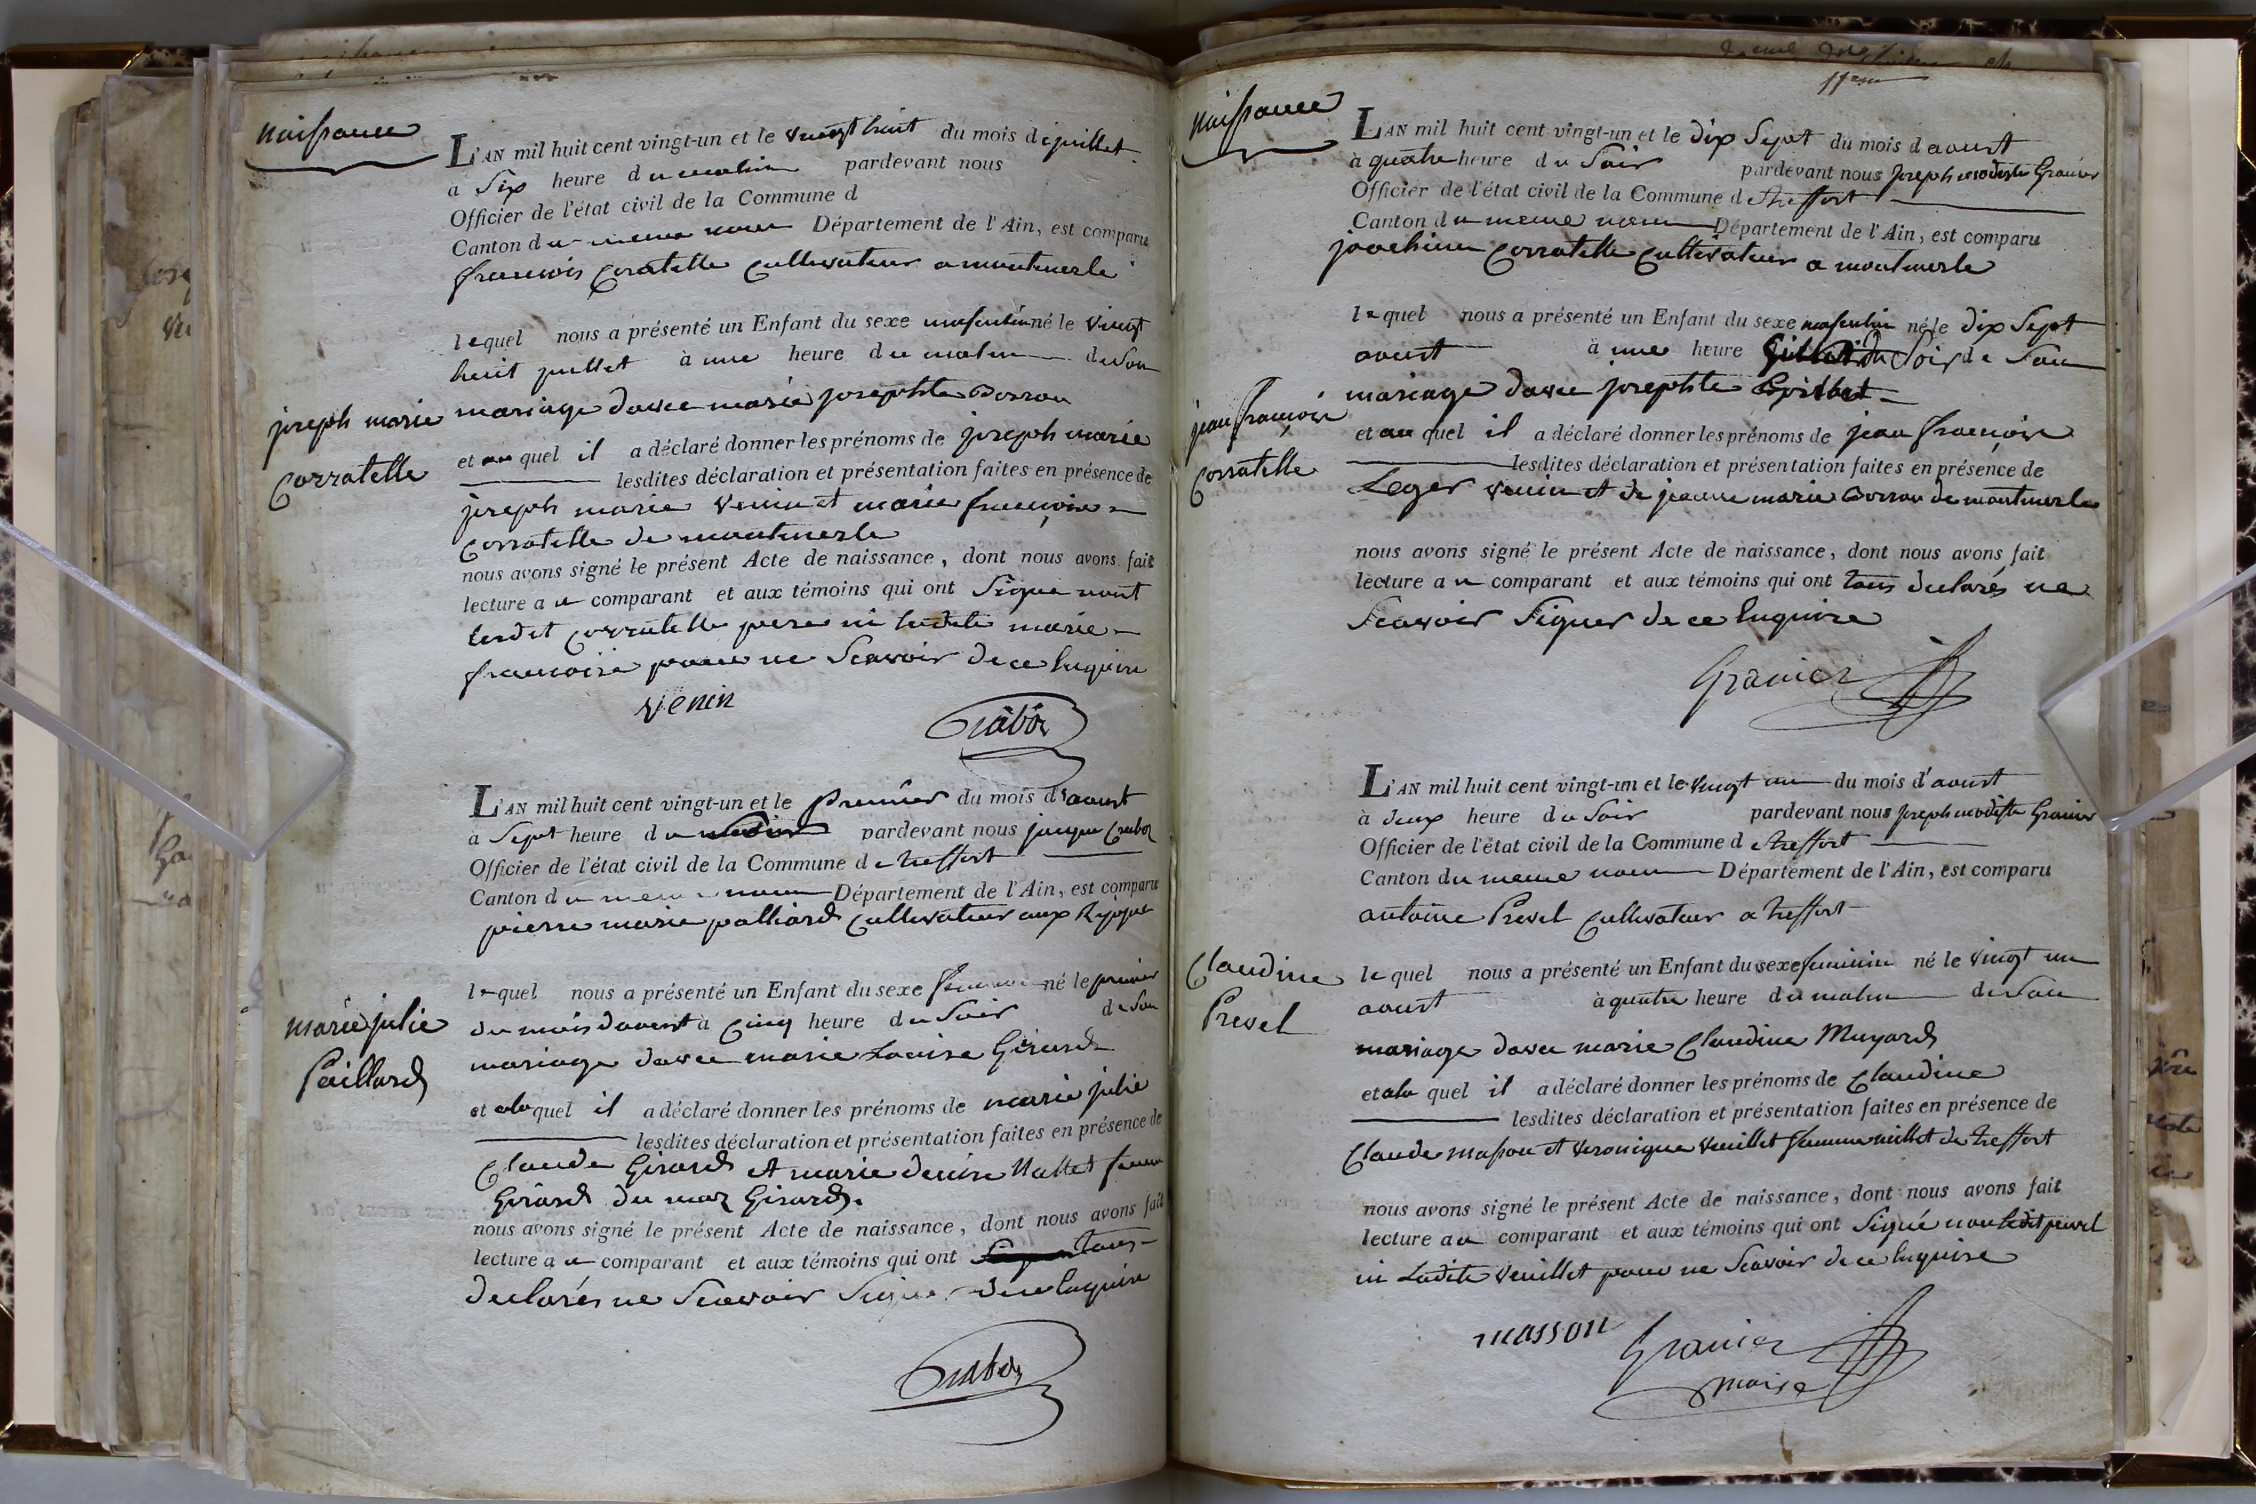 naissance
L'AN mil huit cent vingt-un et le vingt huit du mois de juillet
a Six heure du matin pardevant nous
Officier de l'état civil de la Commune d
Canton du meme nom Département de l'Ain, est comparu
francois Corratelle Cultivateur a montmerle
lequel nous a présenté un Enfant du sexe masculin né le vingt
huit juillet à une heure du matin de son
mariage davec marie josephte Borron
joseph marie
Corratelle
et au quel il a déclaré donner les prénoms de joseph marie
lesdites déclaration et présentation faites en présence de
joseph marie venin et marie françoise
Corratelle de montmerle
nous avons signé le présent Acte de naissance, dont nous avons fait
lecture au comparant et aux témoins qui ont Signé nont
ledit Corratelle pere ni ladite marie
francoise pour ne Scavoir de ce Enquire
venin
L'AN mil huit cent vingt-un et le premier du mois d'aoust
à Sept heure du pardevant nous jacque
Officier de l'état civil de la Commune de treffort
Canton du meme nom Département de l'Ain, est comparu
pierre marie palliard Cultivateur aux
lequel nous a présenté un Enfant du sexe né le premier
du mois daoust à Cinq heure du Soir de Son
mariage davec marie Louise Girard
marie julie
Paillard
et ala quel il a déclaré donner les prénoms de marie julie
lesdites déclaration et présentation faites en présence de
Claude Girard et marie denise Mallet femme
Girard du maz Girard.
nous avons signé le présent Acte de naissance, dont nous avons fait
lecture au comparant et aux témoins qui ont tous
declarés ne Scavoir Signer de ce Enquire
11eme
naissance
L'AN mil huit cent vingt-un et le dix Sept du mois daoust
à quatre heure du Soir pardevant nous joseph modeste Granier
Officier de l'état civil de la Commune de treffort
Canton du meme nom Département de l'Ain, est comparu
joachim Corratelle Cultivateur a montmerle
lequel nous a présenté un Enfant du sexe masculin né le dix Sept
aoust à une heure du Soir de Son
mariage davec josephte
jean françois
Corratelle
et au quel il a déclaré donner les prénoms de jean françois
lesdites déclaration et présentation faites en présence de
Leger venin et de jeanne marie Borron de montmerle
nous avons signé le présent Acte de naissance, dont nous avons fait
lecture au comparant et aux témoins qui ont tous declarés ne
Scavoir Signer de ce Enquire
Granier
L'AN mil huit cent vingt-un et le vingt un du mois d'aoust
à deux heure du Soir pardevant nous joseph modeste Granier
Officier de l'état civil de la Commune de treffort
Canton du meme nom Département de l'Ain, est comparu
antoine Prevel Cultivateur a treffort
lequel nous a présenté un Enfant du sexe feminin né le vingt un
aoust à quatre heure du matin de Son
mariage davec marie Claudine Muyard
Claudine
Prevel
et ala quel il a déclaré donner les prénoms de Claudine
lesdites déclaration et présentation faites en présence de
Claude Masson et veronique veuillet femme millet de treffort
nous avons signé le présent Acte de naissance, dont nous avons fait
lecture au comparant et aux témoins qui ont Signé non ledit prevel
ni Ladite veuillet pour ne Scavoir de ce Enquire
masson Granier
maire